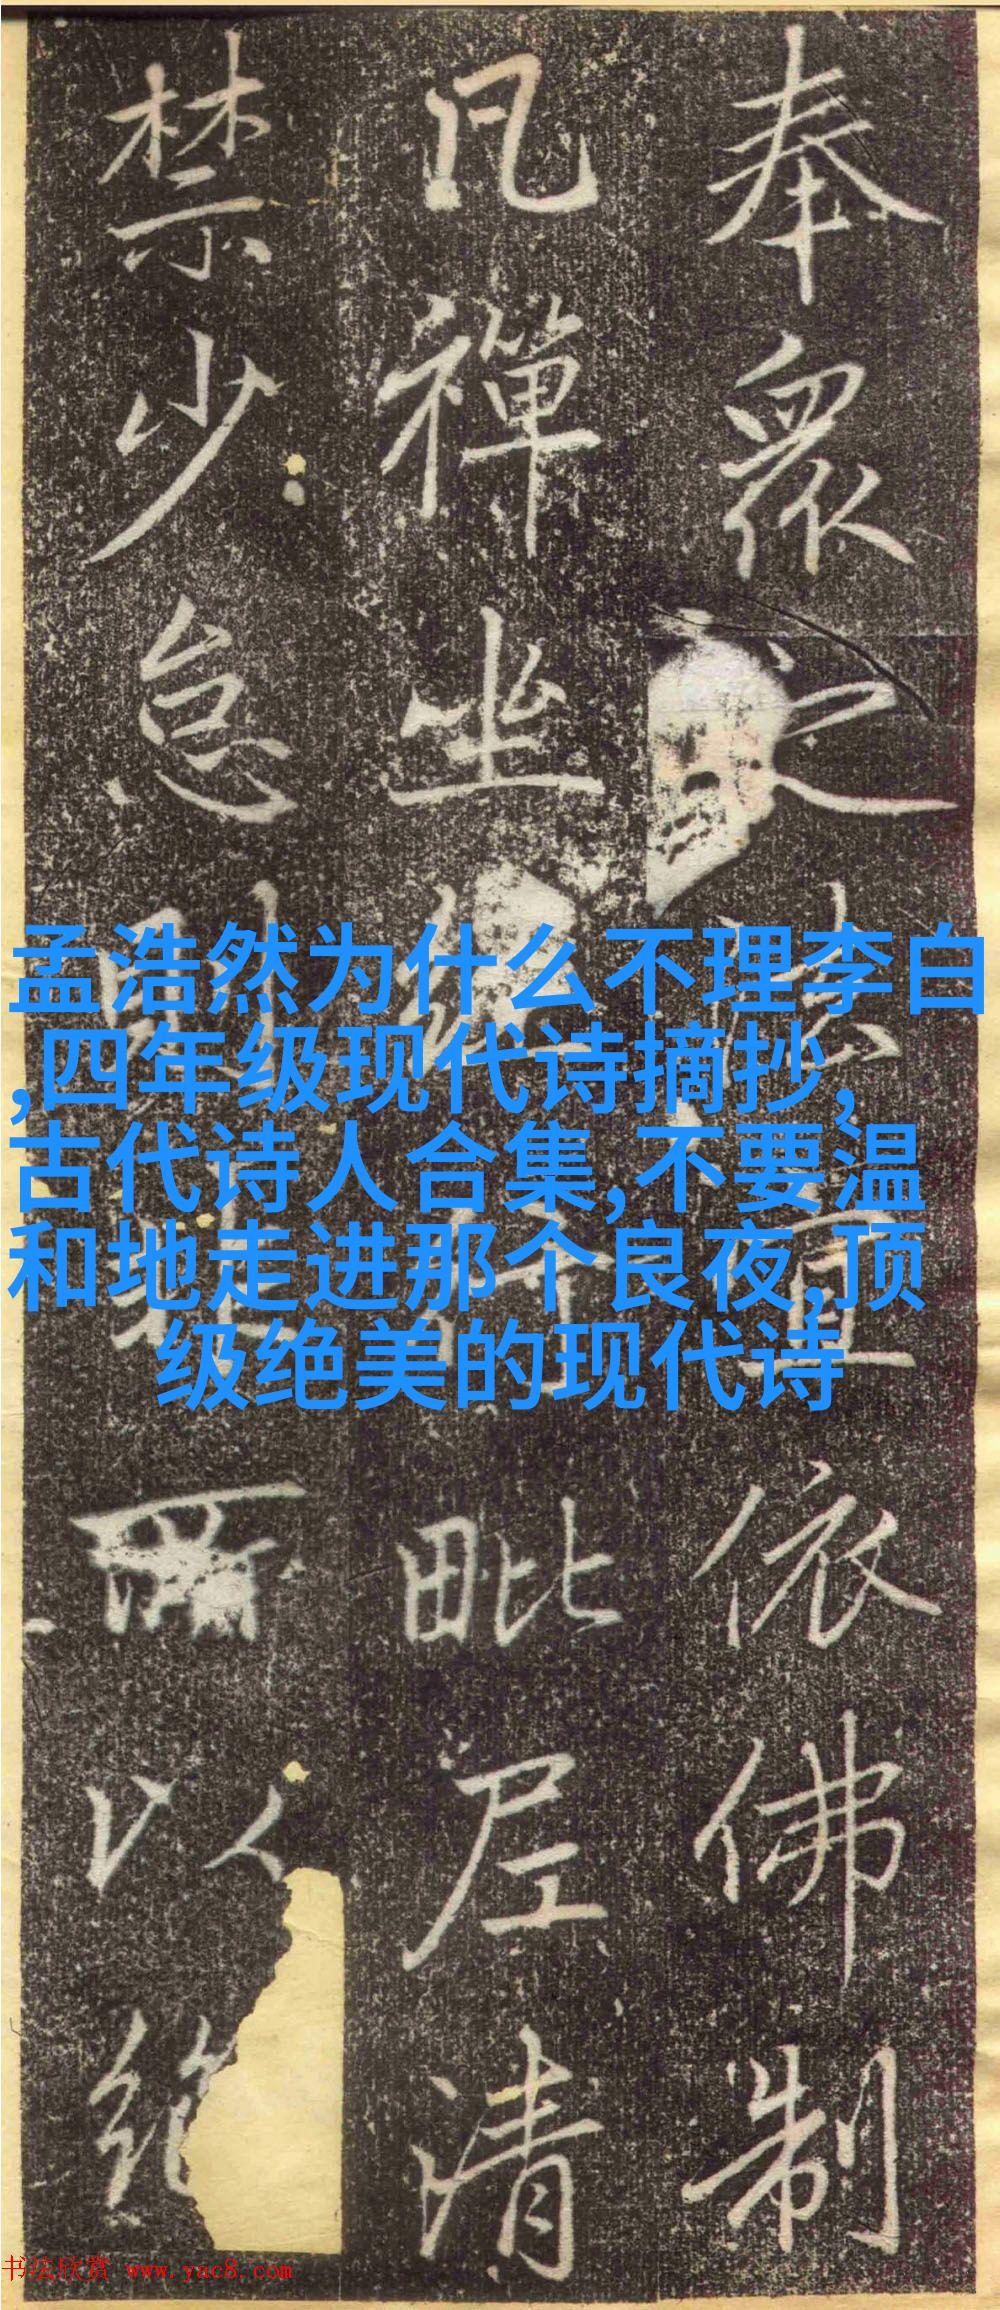 奉眾依佛制
凡禪坐經行毗尼清
禁少怠則所以絕
孟浩然为什么不理李白
,四年级现代诗摘抄,
古代诗人合集,不要温
和地走进那个良夜,顶
级绝美的现代诗
书法欣赏 www.yac8.com